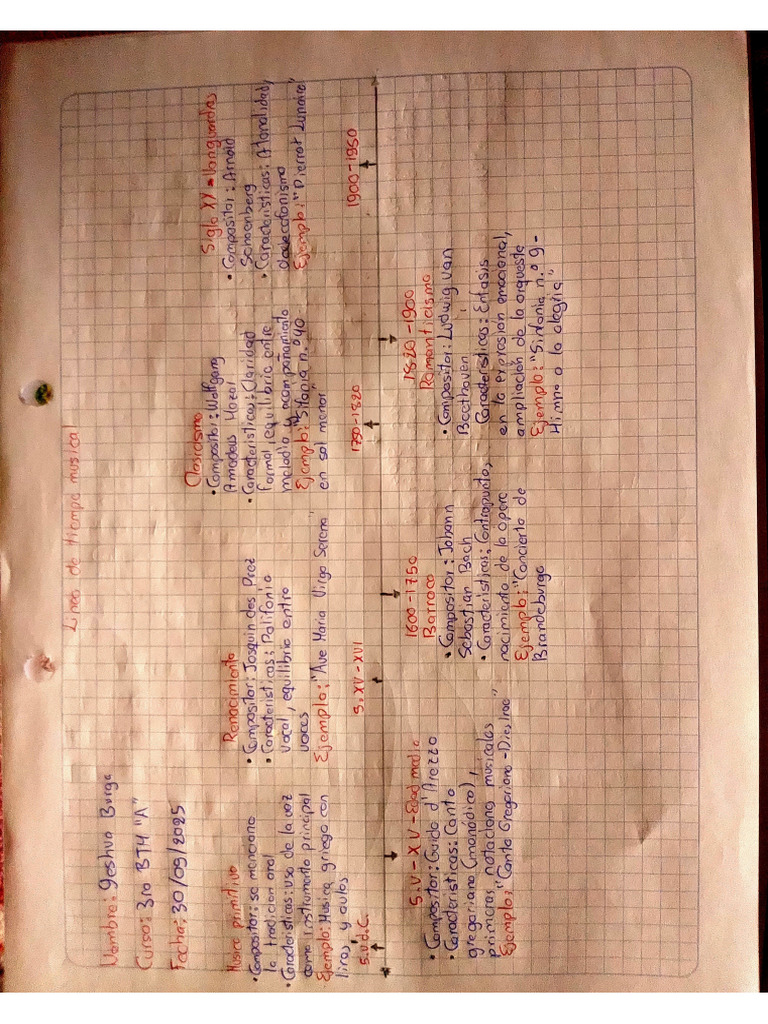 Linea de tiempo musical
Nombre: Yeshua Burga
Curso: 3ro BTH "A"
Fecha: 30/09/2025
Musica primitiva
• Compositor: se menciona
la tradicion oral
• Caracteristicas: uso de la voz
como instrumento principal
Ejemplo: Musica griega con
liras, y aulos
S.V d.C.
Renacimiento
• Compositor: Josquin des Prez
• Caracteristicas: Polifonia
vocal, equilibrio entre
voces
Ejemplo: "Ave Maria Virgo Serena"
S. XV - XVI
Clasicismo
• Compositor: Wolfgang
Amadeus Mozar
• Caracteristicas: Claridad
formal, equilibrio entre
melodia y acompañamiento
Ejemplo: Sifonia n.º 40
en sol menor"
1750-1820
Siglo XX - Vanguardias
• Compositor: Arnold
Schoenberg
• Caracteristicas: Atonalidad,
dodecafonismo
Ejemplo: "Pierrot Lunaire"
1900-1950
S.V - XV - Edad media
• Compositor: Guido d'Arezzo
• Caracteristicas: Canto
gregoriano (monódico),
primeras notaciones musicales
Ejemplo: "Canto Gregoriano - Dies Irae"
1600-1750
Barroco
• Compositor: Johann
Sebastian Bach
• Caracteristicas: Contrapunto,
nacimiento de la opera
Ejemplo: "Concierto de
Brandeburgo
1820-1900
Romanticismo
• Compositor: Ludwig van
Beethoven
Caracteristicas: Enfasis
en la expresion emocional,
ampliación de la orquesta
Ejemplo: "Sinfonia n.º 9 -
Himno a la alegria"